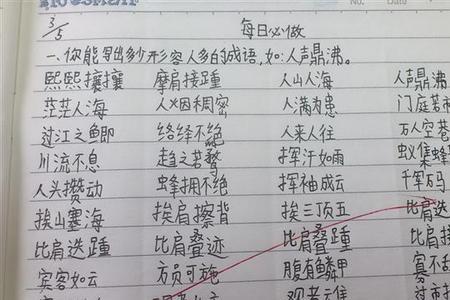 3/5 每日必做
一、你能写出多少形容人多的成语,如:人声鼎沸。
熙熙攘攘 摩肩接踵 人山人海 人声鼎沸
茫茫人海 人烟稠密 人满为患 门庭若
过江之鲫 络绎不绝 人来人往 万人空巷
川流不息 趋之若鹜 挥汗如雨 蚁集蜂
人头攒动 蜂拥不绝 挥袖成云 千军万马
挨山塞海 挨肩擦背 挨三顶五 比肩迭
比肩迭踵 比肩叠迹 比肩叠踵 比肩
宾客如云 方员可施 腹有鳞甲 寡不
观者如